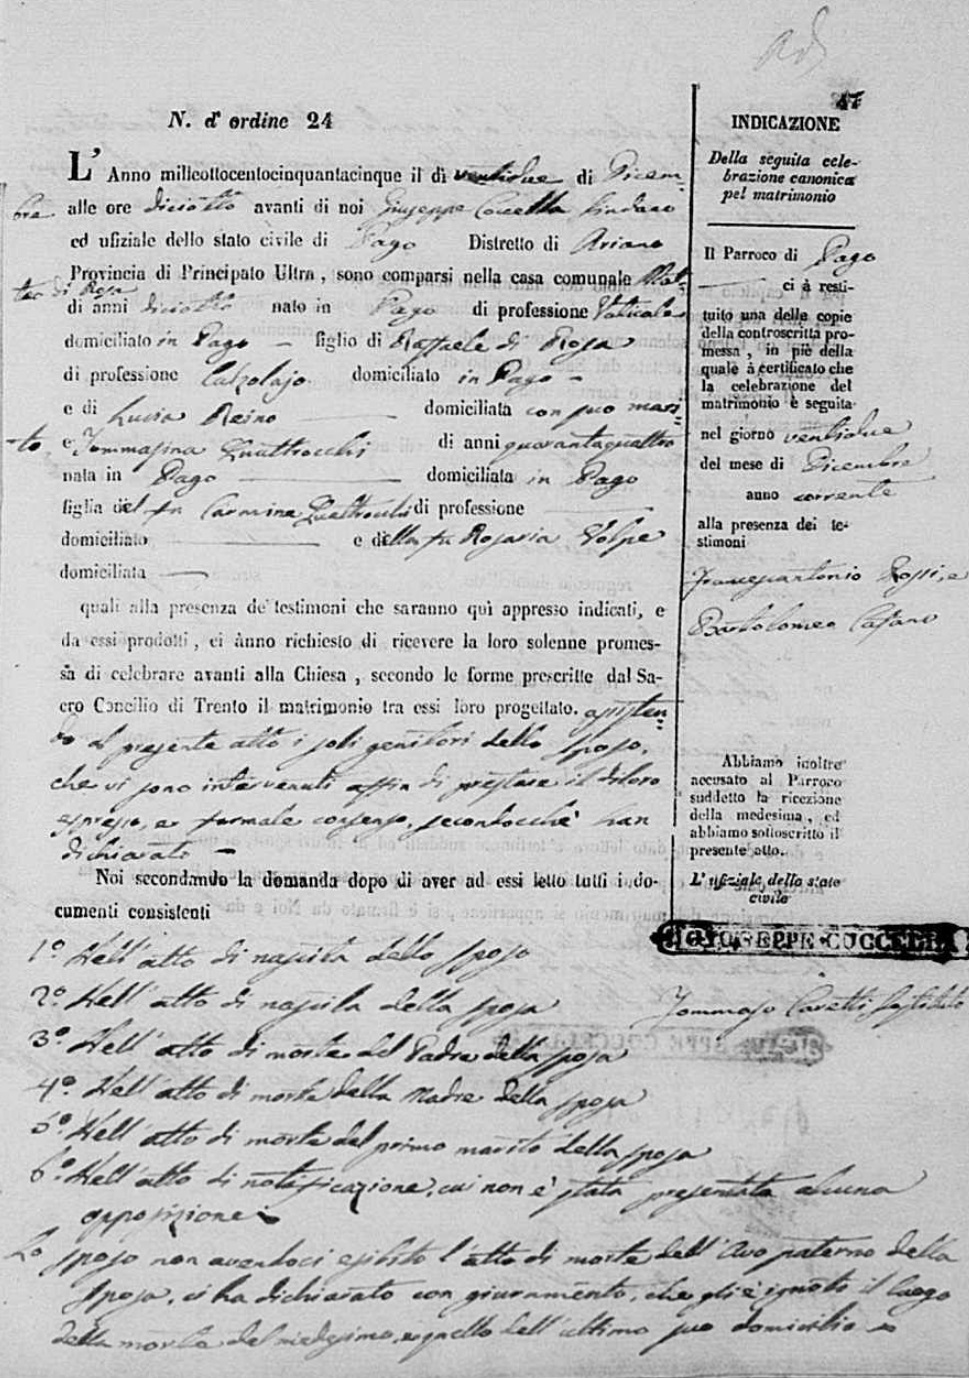 47
N. d' ordine 24
L' Anno millcottocentocinquantacinque il dì ventidue di Dicem-
bre alle ore diciotto avanti di noi Giuseppe Coccella Sindaco
ed ufiziale dello stato civile di Pago Distretto di Ariano
Provincia di Principato Ultra, sono comparsi nella casa comunale Mat-
teo di Rosa
di anni diciotto nato in Pago di professione Vaticale
domiciliato in Pago figlio di Raffaele di Rosa
di professione Calzolajo domiciliato in Pago
e di Lucia Reino domiciliata con suo mari-
to, e Tommasina Quattrocchi di anni quarantaquattro
nata in Pago domiciliata in Pago
figlia del fu Carmine Quattrocchi di professione
domiciliato e della fu Rosaria Volpe
domiciliata
quali alla presenza de' testimoni che saranno quì appresso indicati, e
da essi prodotti, ci ànno richiesto di ricevere la loro solenne promes-
sa di celebrare avanti alla Chiesa, secondo le forme prescritte dal Sa-
cro Concilio di Trento il matrimonio tra essi loro progettato. assisten-
do al presente atto i soli genitori dello sposo,
che vi sono intervenuti affin di prestare il di loro
espresso, e formale consenso, secondocchè han
dichiarato
Noi secondando la domanda dopo di aver ad essi letto tutti i do-
cumenti consistenti
1.° Nell' atto di nascita dello sposo
2.° Nell' atto di nascita della sposa
3.° Nell' atto di morte del Padre della sposa
4.° Nell' atto di morte della Madre della sposa
5.° Nell' atto di morte del primo marito della sposa
6.° Nell' atto di notificazione, cui non è stata presentata alcuna
opposizione
Lo sposo non avendoci esibito l'atto di morte dell' Avo paterno della
sposa, ci ha dichiarato con giuramento, che gli è ignoto il luogo
della morte del medesimo, e quello dell' ultimo suo domicilio
INDICAZIONE
Della seguita cele-
brazione canonica
pel matrimonio
Il Parroco di Pago
ci à resti-
tuito una delle copie
della controscritta pro-
messa, in piè della
quale à certificato che
la celebrazione del
matrimonio è seguita
nel giorno ventidue
del mese di Dicembre
anno corrente
alla presenza dei te-
stimoni
Francescantonio Rossi, e
Bartolomeo Casaro
Abbiamo inoltre
accusato al Parroco
suddetto la ricezione
della medesima, ed
abbiamo sottoscritto il
presente atto.
L' ufiziale dello stato
civile
GIUSEPPE COCCELLA
Tommaso